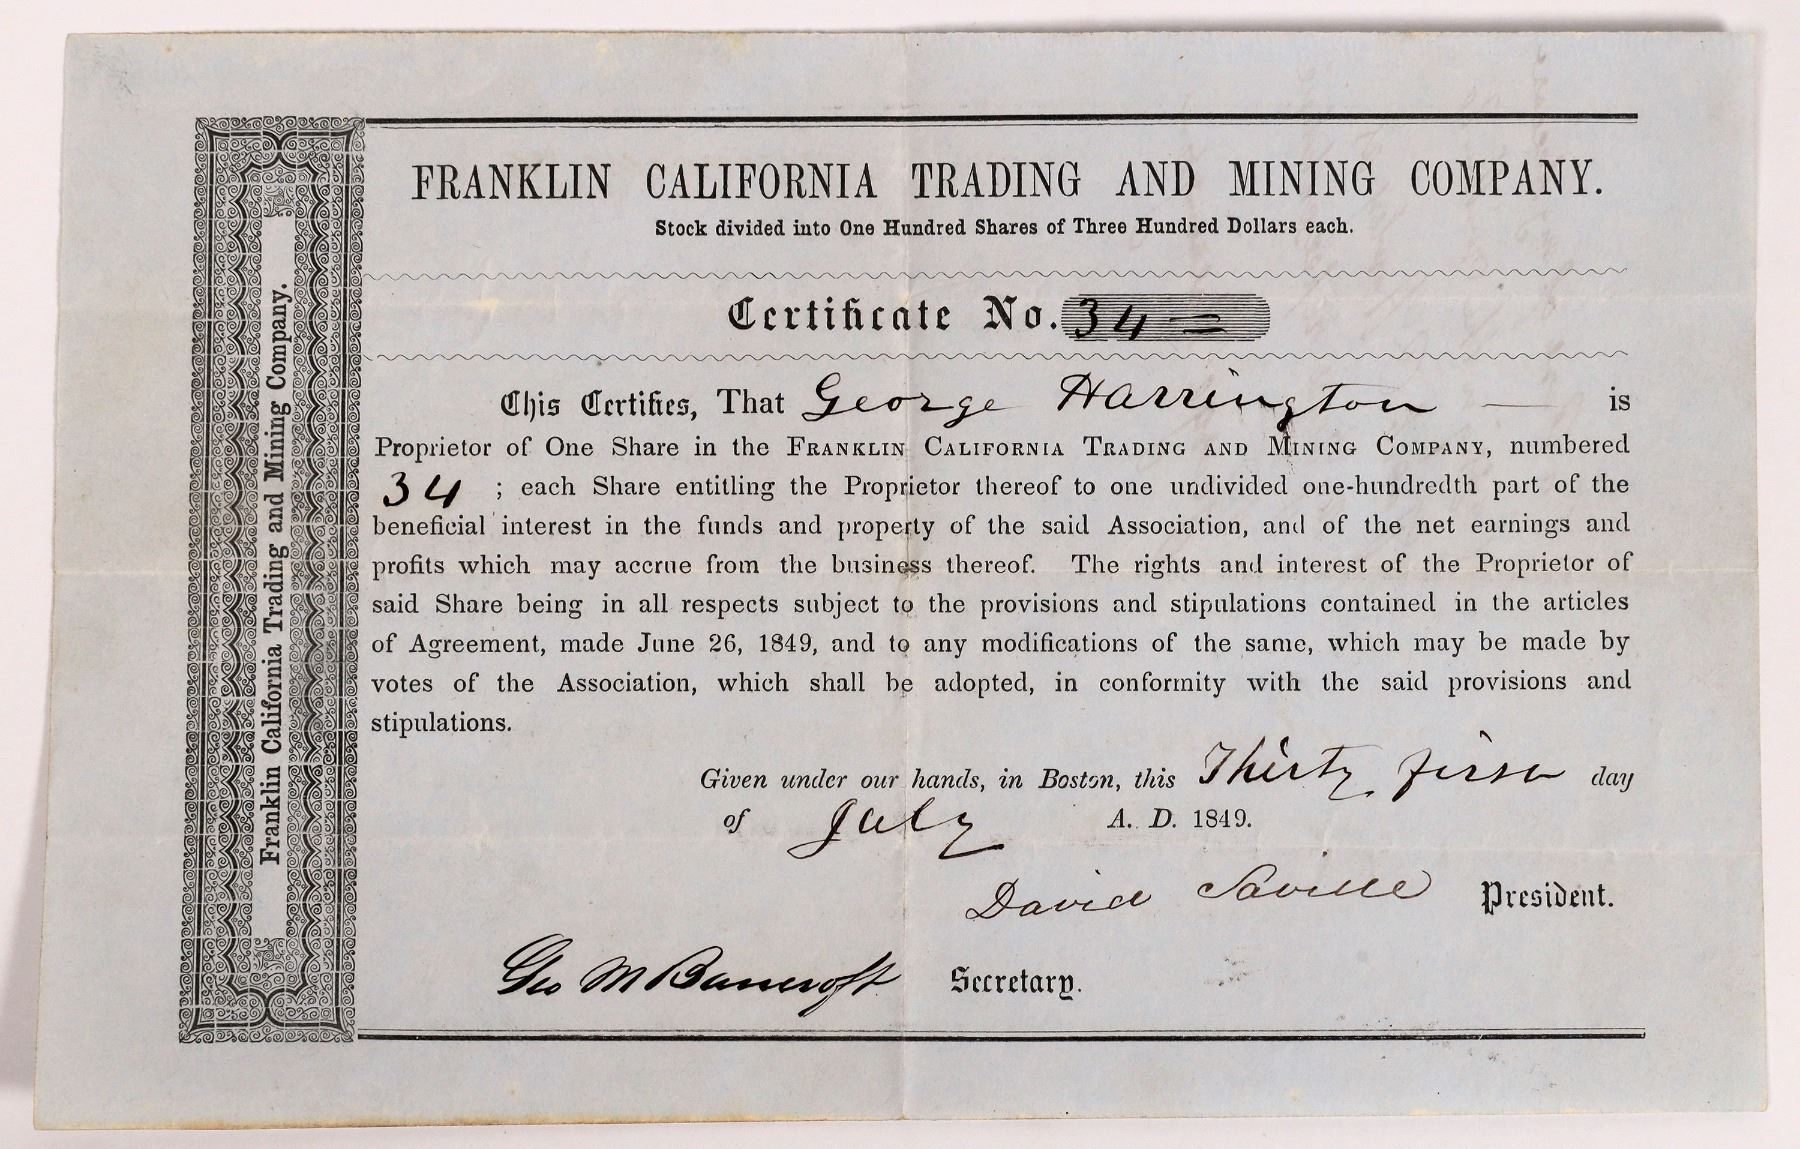 FRANKLIN CALIFORNIA TRADING AND MINING COMPANY.
Stock divided into One Hundred Shares of Three Hundred Dollars each.
Certificate No. 34 =
This Certifies, That George Harrington — is
Proprietor of One Share in the FRANKLIN CALIFORNIA TRADING AND MINING COMPANY, numbered
34 ; each Share entitling the Proprietor thereof to one undivided one-hundredth part of the
beneficial interest in the funds and property of the said Association, and of the net earnings and
profits which may accrue from the business thereof. The rights and interest of the Proprietor of
said Share being in all respects subject to the provisions and stipulations contained in the articles
of Agreement, made June 26, 1849, and to any modifications of the same, which may be made by
votes of the Association, which shall be adopted, in conformity with the said provisions and
stipulations.
Given under our hands, in Boston, this Thirty first day
of July A. D. 1849.
David Saville President.
Geo M Bancroft Secretary.
Franklin California Trading and Mining Company.